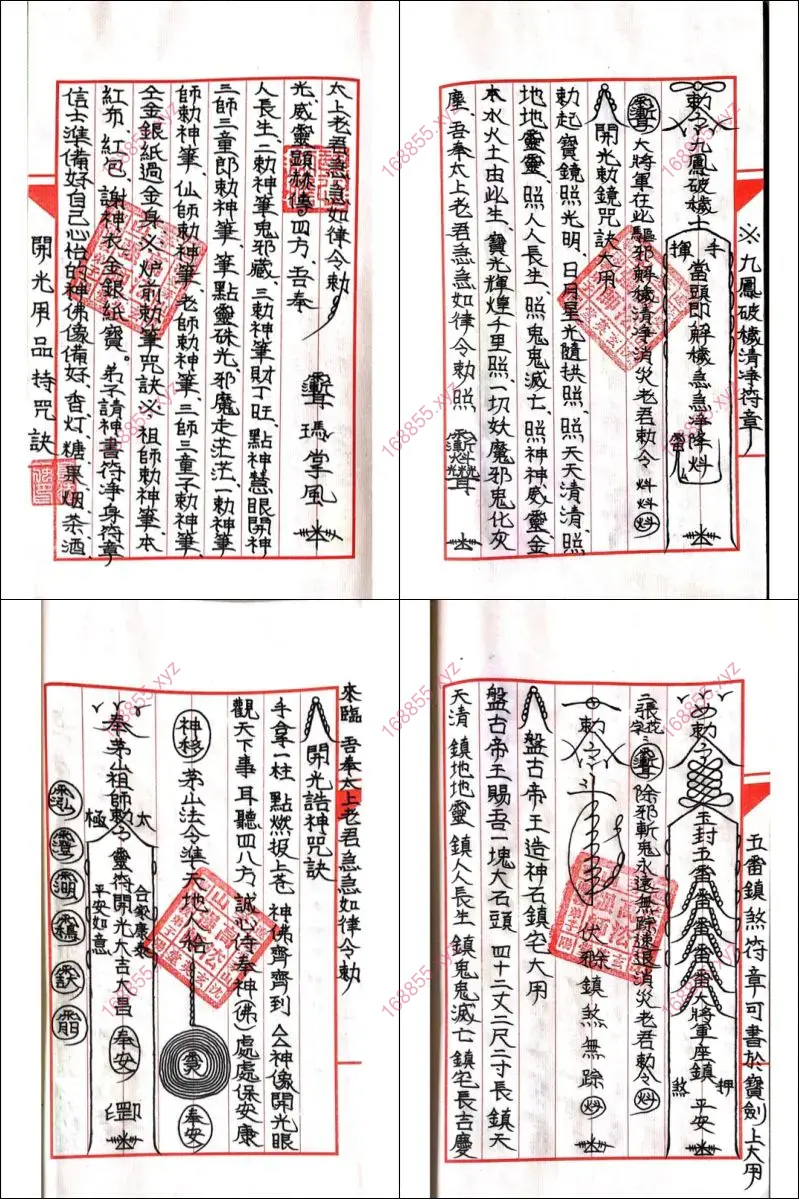 ※九鳳破穢清淨符章
勅令九鳳破穢士
手揮
當頭即解穢急急淨降
大將軍在此驅邪解穢清淨消災老君勅令
開光勅鏡咒訣大用
勅起寶鏡照光明、日月星光隨拱照、照天天清清、照
地地靈靈、照人人長生、照鬼鬼滅亡、照神神威靈金
木水火土由此生、寶光輝煌千里照、一切妖魔邪鬼化灰
塵、吾奉太上老君急急如律令勅照
太上老君急急如律令勅
光、威靈顯赫傳四方、吾奉
人長生、二勅神筆鬼邪藏、三勅神筆財丁旺、點神慧眼開神
三師三童郎勅神筆、筆點靈硃光、邪魔走茫茫、一勅神筆
師勅神筆、仙師勅神筆、老師勅神筆、三師三童子勅神筆、
仝金銀紙過金身※爐前勅筆咒訣※祖師勅神筆、本
紅布、紅包、謝神衣金銀紙寶。弟子請神書符淨身符章
信士準備好自己心怡的神佛像備好、香灯、糖、果、烟、茶、酒、
開光用品持咒訣
五番鎮煞符章可書於寶劍上大用
勅令
玉封五番番番番番大將軍座鎮平安
押煞
除邪斬鬼永遠無踪速退消災老君勅令
勅令
伏
鎮煞無踪
盤古帝王造神石鎮宅大用
盤古帝王賜吾一塊大石頭 四十二丈二尺二寸長 鎮天
天清 鎮地地靈 鎮人人長生 鎮鬼鬼滅亡 鎮宅長吉慶
來臨 吾奉太上老君急急如律令勅
開光誥神咒訣
手拿一柱 點燃拔上苍 神佛齊齊到 仝神像開光眼
觀天下事 耳聽四八方 誠心侍奉神(佛)處處保安康
茅山法令準天地人
奉安
奉茅山祖師勅令靈符開光大吉大昌
太極
合家康泰
平安如意
奉安
168855.xyz
168855.xyz
168855.xyz
168855.xyz
168855.xyz
168855.xyz
168855.xyz
168855.xyz